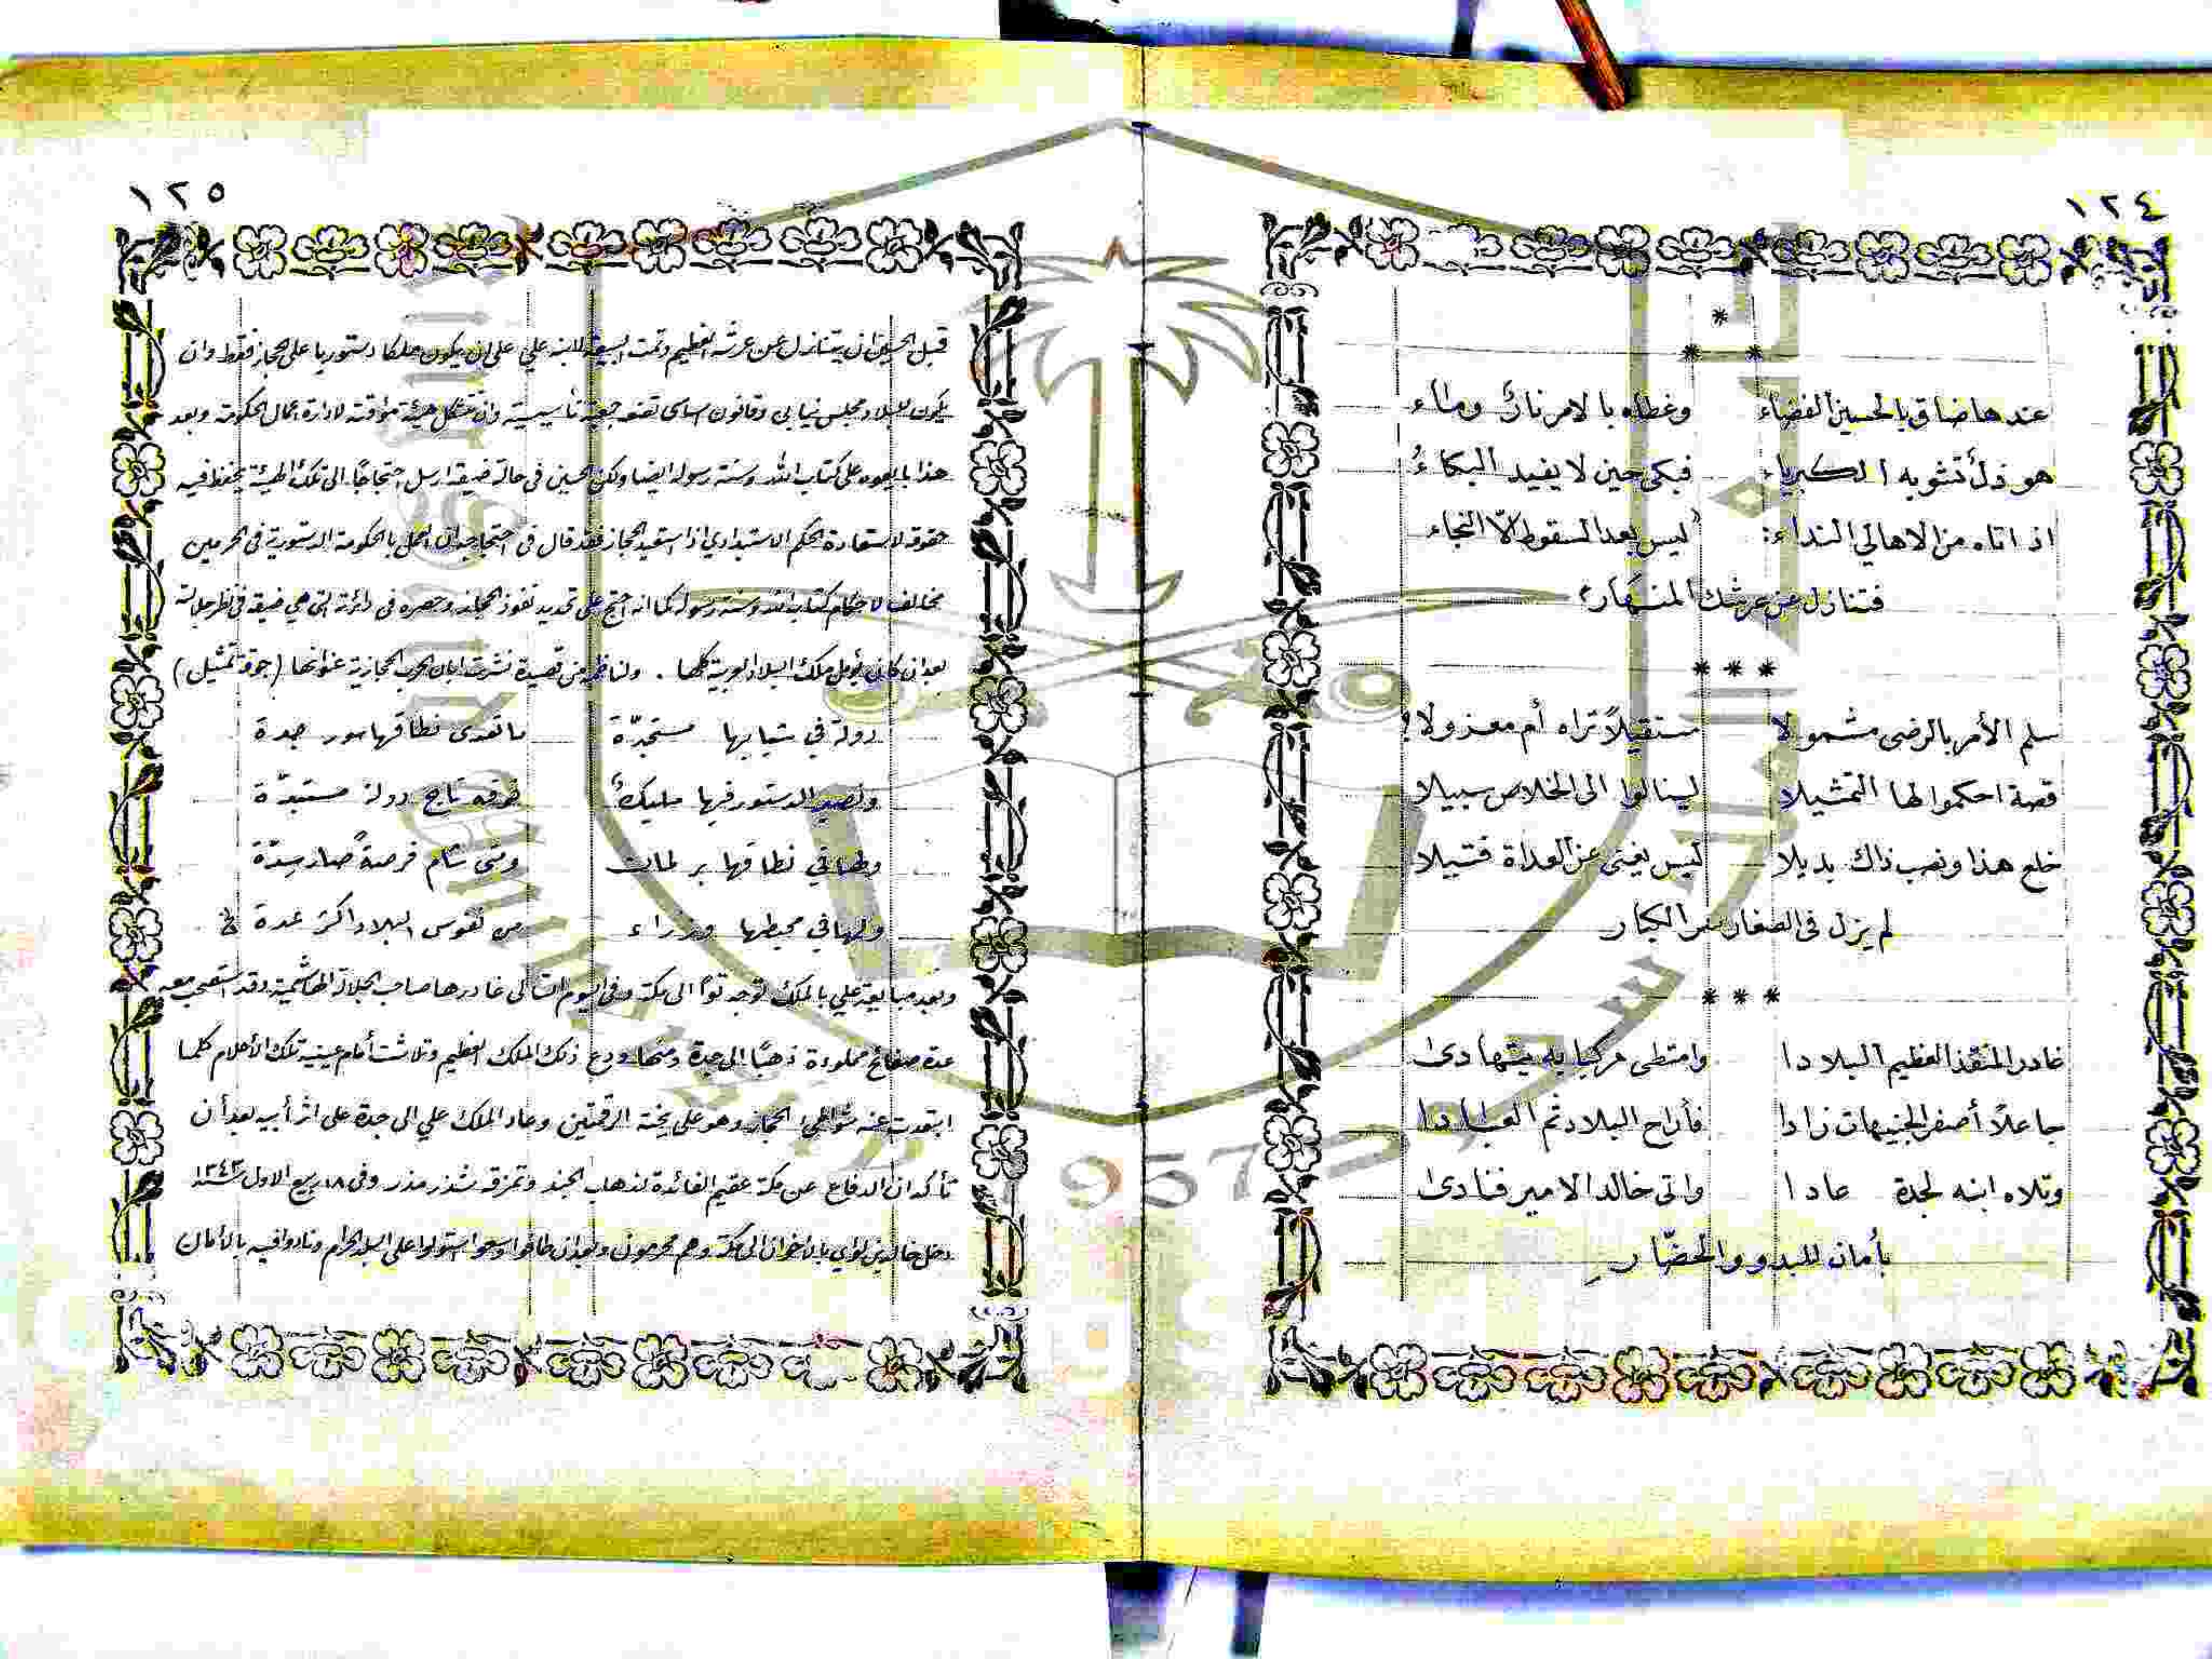 ١٢٤
*
* *
عندها ضاق بالحسين الفضاء وغطاه بالامر نارٌ وماء
هو ذلٌ تشوبه الكبرياء فبكى حين لا يفيد البكاءُ
اذ اتاه من الاهالي النداء: ليس بعد السقوط الّا النجاء
فتنازل عن عرشك المنهار
* * *
سلم الأمر بالرضى مشمولا مستقيلاً تراه أم معزولا؟
قصة احكموا لها التمثيلا لينالوا الى الخلاص سبيلا
خلع هذا ونصب ذاك بديلا ليس يغنى عن العداة فتيلا
لم يزل في الصغار الكبار
* * *
غادر المنقذ العظيم البلادا وامتطى مركبا به يتهادى
جاعلاً أصفر الجنيهات زادا فأراح البلاد ثم العبادا
وتلاه ابنه لجدة عادا واتى خالد الامير فنادى
بأمان للبدو والحضّار
١٢٥
قبل الحسين ان يتنازل عن عرشه العظيم وتمت البيعة لابنه علي على ان يكون ملكا دستوريا على الحجاز فقط وان
يكون للبلاد مجلس نيابي وقانون اساسى تضعه جمعية تأسيسية وان تتشكل هيئة مؤقتة لادارة اعمال الحكومة وبعد
هذا بايعوه على كتاب الله وسنة رسوله ايضا ولكن الحسين في حالة ضيقه ارسل احتجاجًا الى تلك الهيئة يحفظ فيه
حقوقه لاستعادة الحكم الاستبدادي اذا استعيد الحجاز فقد قال في احتجاجه ان العمل بالحكومة الدستورية في الحرمين
مخالف لاحكام كتاب الله وسنة رسوله كما انه احتج على تحديد نفوذ الحجاز وحصره في دائرته التي هي ضيقه في نظر جلالته
بعد ان كان يؤمل ملك البلاد العربية كلها . ولناظم من قصيدة نشرت ابان الحرب الحجازية عنوانها (جوقة تمثيل)
دولة في شبابها مستجدّة ما تعدى نطاقها سور جدة
ونصير الدستور فيها مليكٌ فوقه تاج دولة مستبدّة
ولها في نطاقها برلمان ومتى شام فرصةً صار سدّة
ولها في محيطها وزراء من نفوس البلاد اكثر عدة
وبعد مبايعة علي بالملك توجه توًا الى مكة وفي اليوم التالى غادرها صاحب الجلالة الهاشمية وقد استصحب معه
عدة صفائح مملوءة ذهبًا الى جدة ومنها ودع ذلك الملك العظيم وتلاشت أمام عينيه تلك الأحلام كلما
ابتعدت عنه شواطىء الحجاز وهو على يخته الرقمتين وعاد الملك علي الى جدة على اثر أبيه بعد أن
تأكد ان الدفاع عن مكة عقيم الفائدة لذهاب الجند وتمزقه شذر مذر وفى ١٨ ربيع الاول سنة ١٣٤٣
دخل خالد بن لؤي بالاخوان الى مكة وهم محرمون وبعد ان طافوا وسعوا استولوا على البلد الحرام ونادوا فيه بالأمان